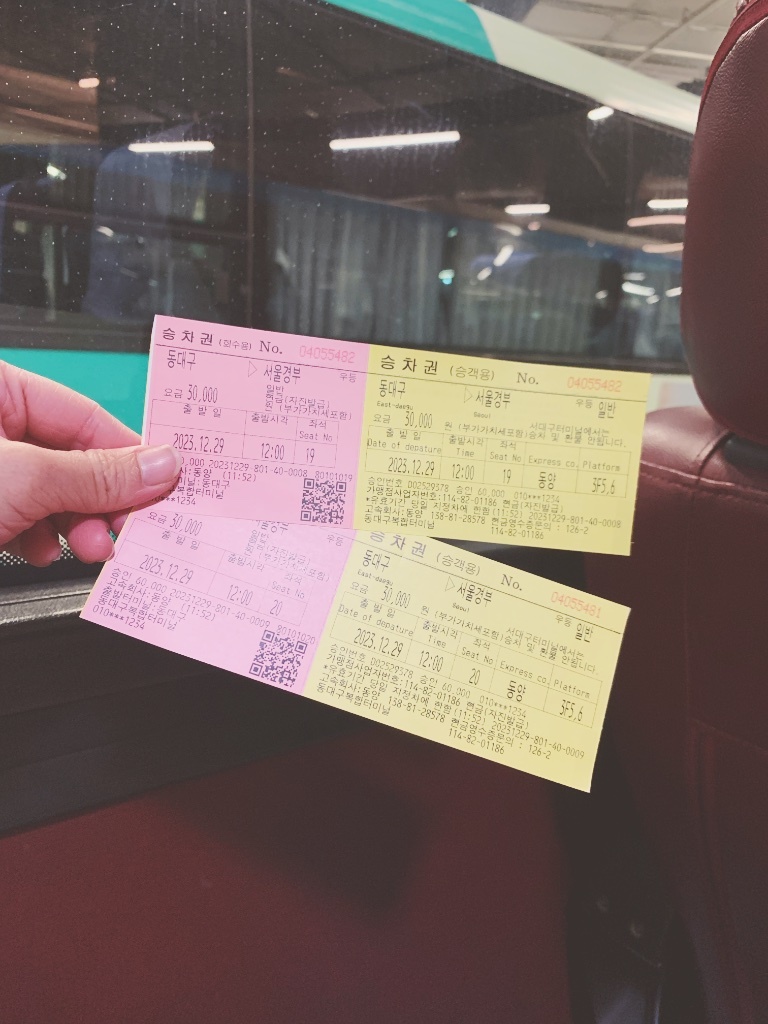 승차권 (회수용) No. 04055482
동대구 ▷ 서울경부 우등
요금 30,000 원 (부가가치세포함)
출발일 출발시각 좌석
Seat No
2023.12.29 12:00 19
20231229 801-40-0008 80101019
(11:52)
승차권 (승객용) No. 04055482
동대구 ▷ 서울경부 우등 일반
East-daegu Seoul
요금 30,000 원 (부가가치세포함)
서대구터미널에서는
승차 및 환불 안됩니다.
출발일 출발시각 좌석
Date of depature Time Seat No Express co. Platform
2023.12.29 12:00 19 동양 3F5,6
승인번호 002529378 승인 60,000 010***1234
가맹점사업자번호:114-82-01186 현금(자진발급)
*유효기간 당일 지정차에 한함 (11:52) 20231229-801-40-0008
고속회사:동양 138-81-28578 현금영수증문의 : 126-2
동대구복합터미널 114-82-01186
30,000
출발일 출발시각 좌석
2023.12.29 12:00 20
승인 60,000 20231229 801-40-0009 80101020
고속회사:동양 (11:52)
출발터미널:동대구
동대구복합터미널
010***1234
승차권 (승객용) No. 04055481
동대구 ▷ 서울경부 우등 일반
East-daegu Seoul
요금 30,000 원 (부가가치세포함)
서대구터미널에서는
승차 및 환불 안됩니다.
출발일 출발시각 좌석
Date of depature Time Seat No Express co. Platform
2023.12.29 12:00 20 동양 3F5,6
승인번호 002529378 승인 60,000 010***1234
가맹점사업자번호:114-82-01186 현금(자진발급)
*유효기간 당일 지정차에 한함 (11:52) 20231229-801-40-0009
고속회사:동양 138-81-28578 현금영수증문의 : 126-2
동대구복합터미널 114-82-01186